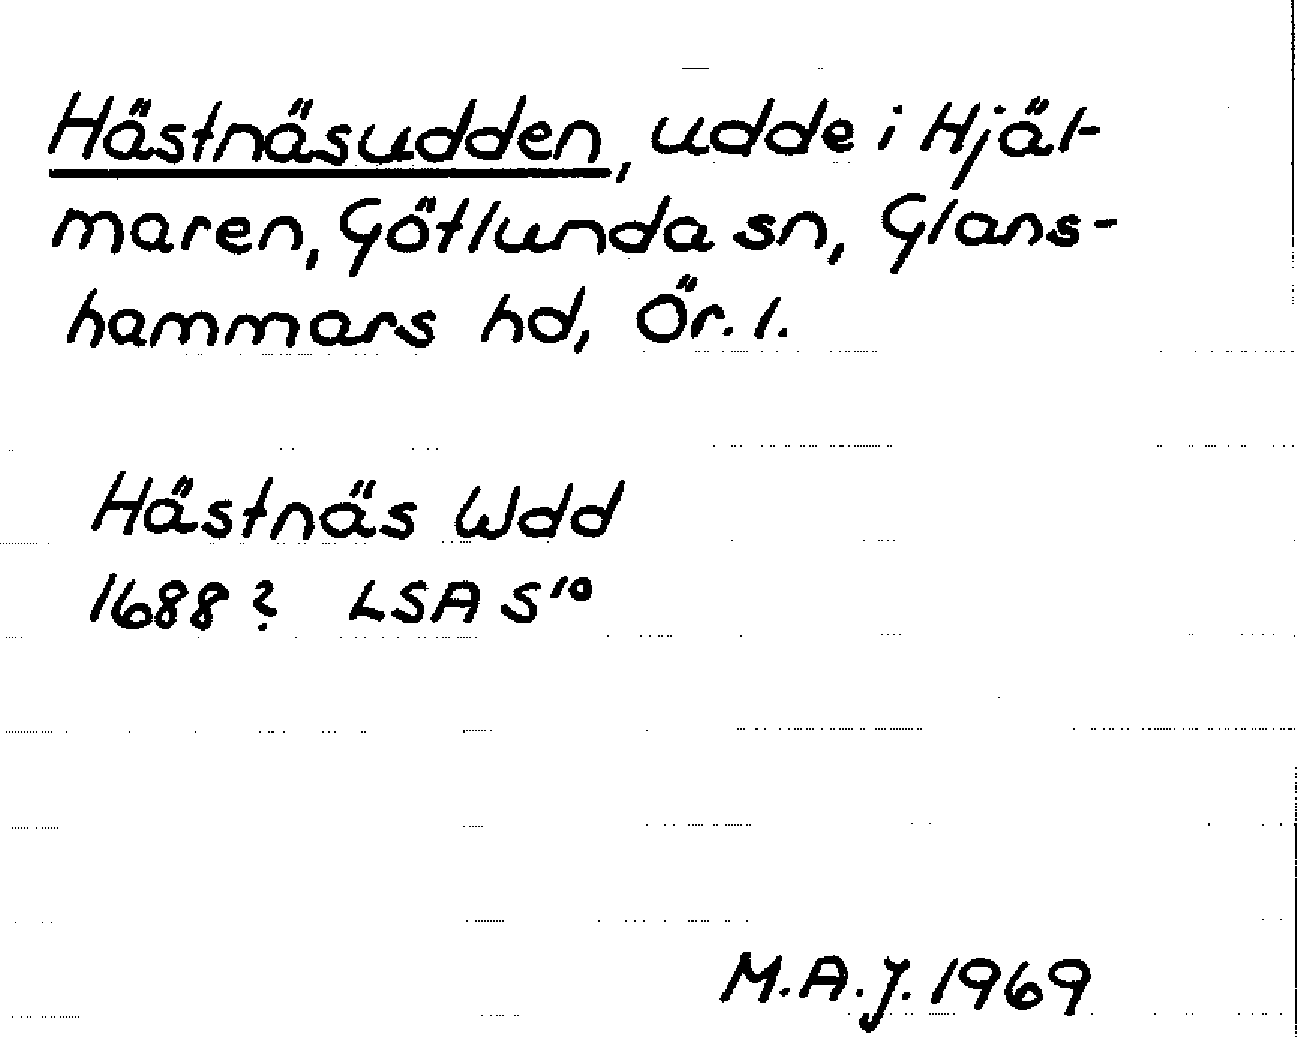 Hästnäsudden, udde i Hjäl-
maren, Götlunda sn, Glans-
hammars hd, Ör. l.
Hästnäs Udd
1688? LSA S¹⁰
M.A.J. 1969